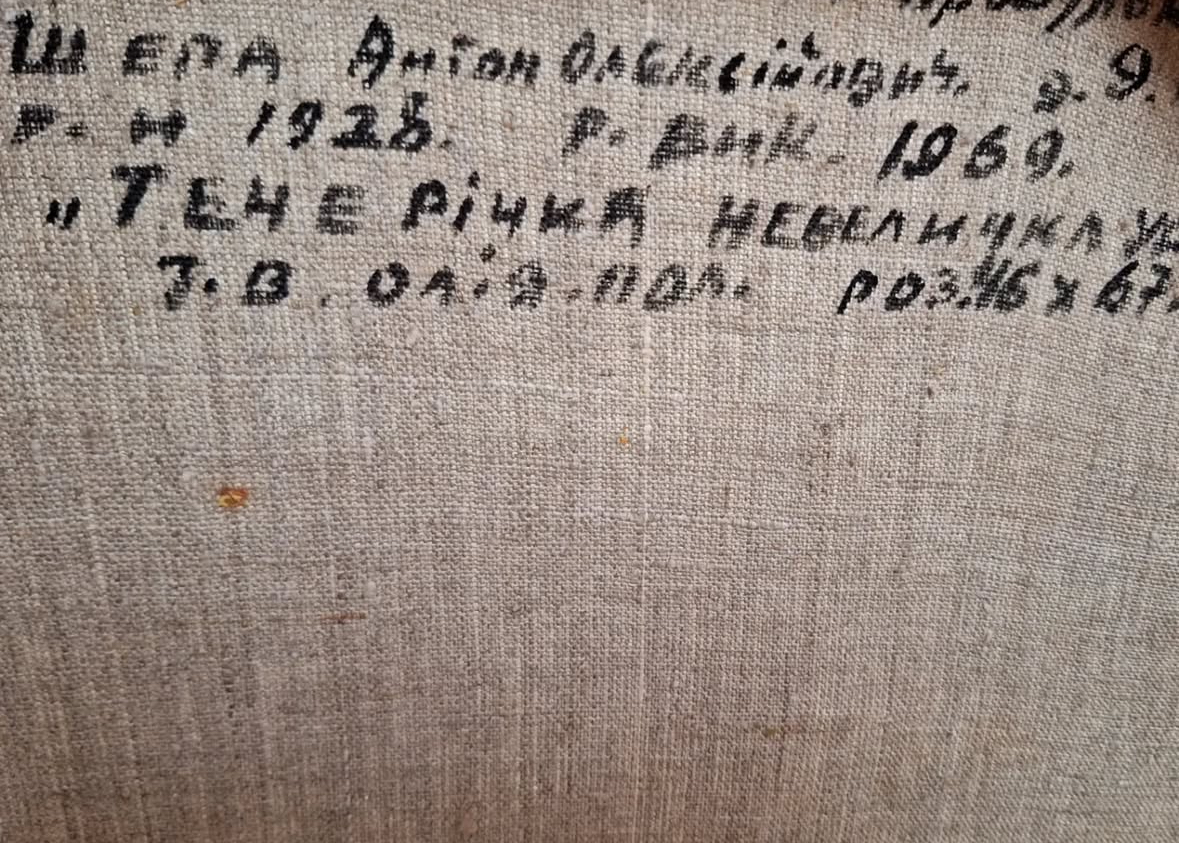 ШЕПА Антон Олексійович. д. 9.
Р. Н 1928. Р. ВИК. 1969.
„ТЕЧЕ РІЧКА НЕВЕЛИЧКА
Т. В. ОЛІЯ. ПОЛ. РОЗ. 46 х 67.